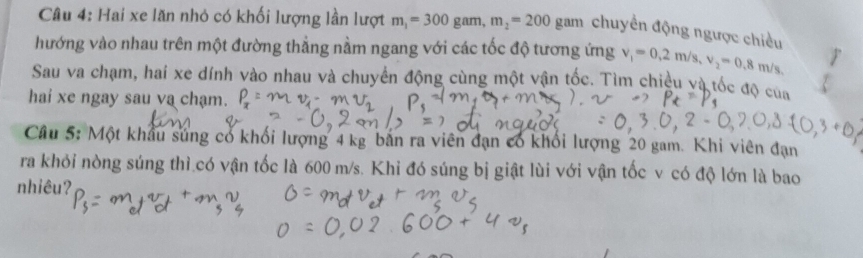 Câu 4: Hai xe lăn nhỏ có khối lượng lần lượt m₁ = 300 gam, m₂ = 200 gam chuyển động ngược chiều
hướng vào nhau trên một đường thẳng nằm ngang với các tốc độ tương ứng v₁ = 0,2 m/s, v₂ = 0,8 m/s.
Sau va chạm, hai xe dính vào nhau và chuyển động cùng một vận tốc. Tìm chiều và tốc độ của
hai xe ngay sau va chạm. = m v₁ - mv₂ = (m₁ + m₂). v =>
= -0,2 m/s => đi ngược = 0,3.0,2 - 0,2.0,8
Câu 5: Một khẩu súng có khối lượng 4 kg bắn ra viên đạn có khối lượng 20 gam. Khi viên đạn
ra khỏi nòng súng thì có vận tốc là 600 m/s. Khi đó súng bị giật lùi với vận tốc v có độ lớn là bao
nhiêu? Pₛ = m_đ v_đ + mₛ vₛ 0 = m_đ v_đ + mₛ vₛ
0 = 0,02 . 600 + 4 vₛ